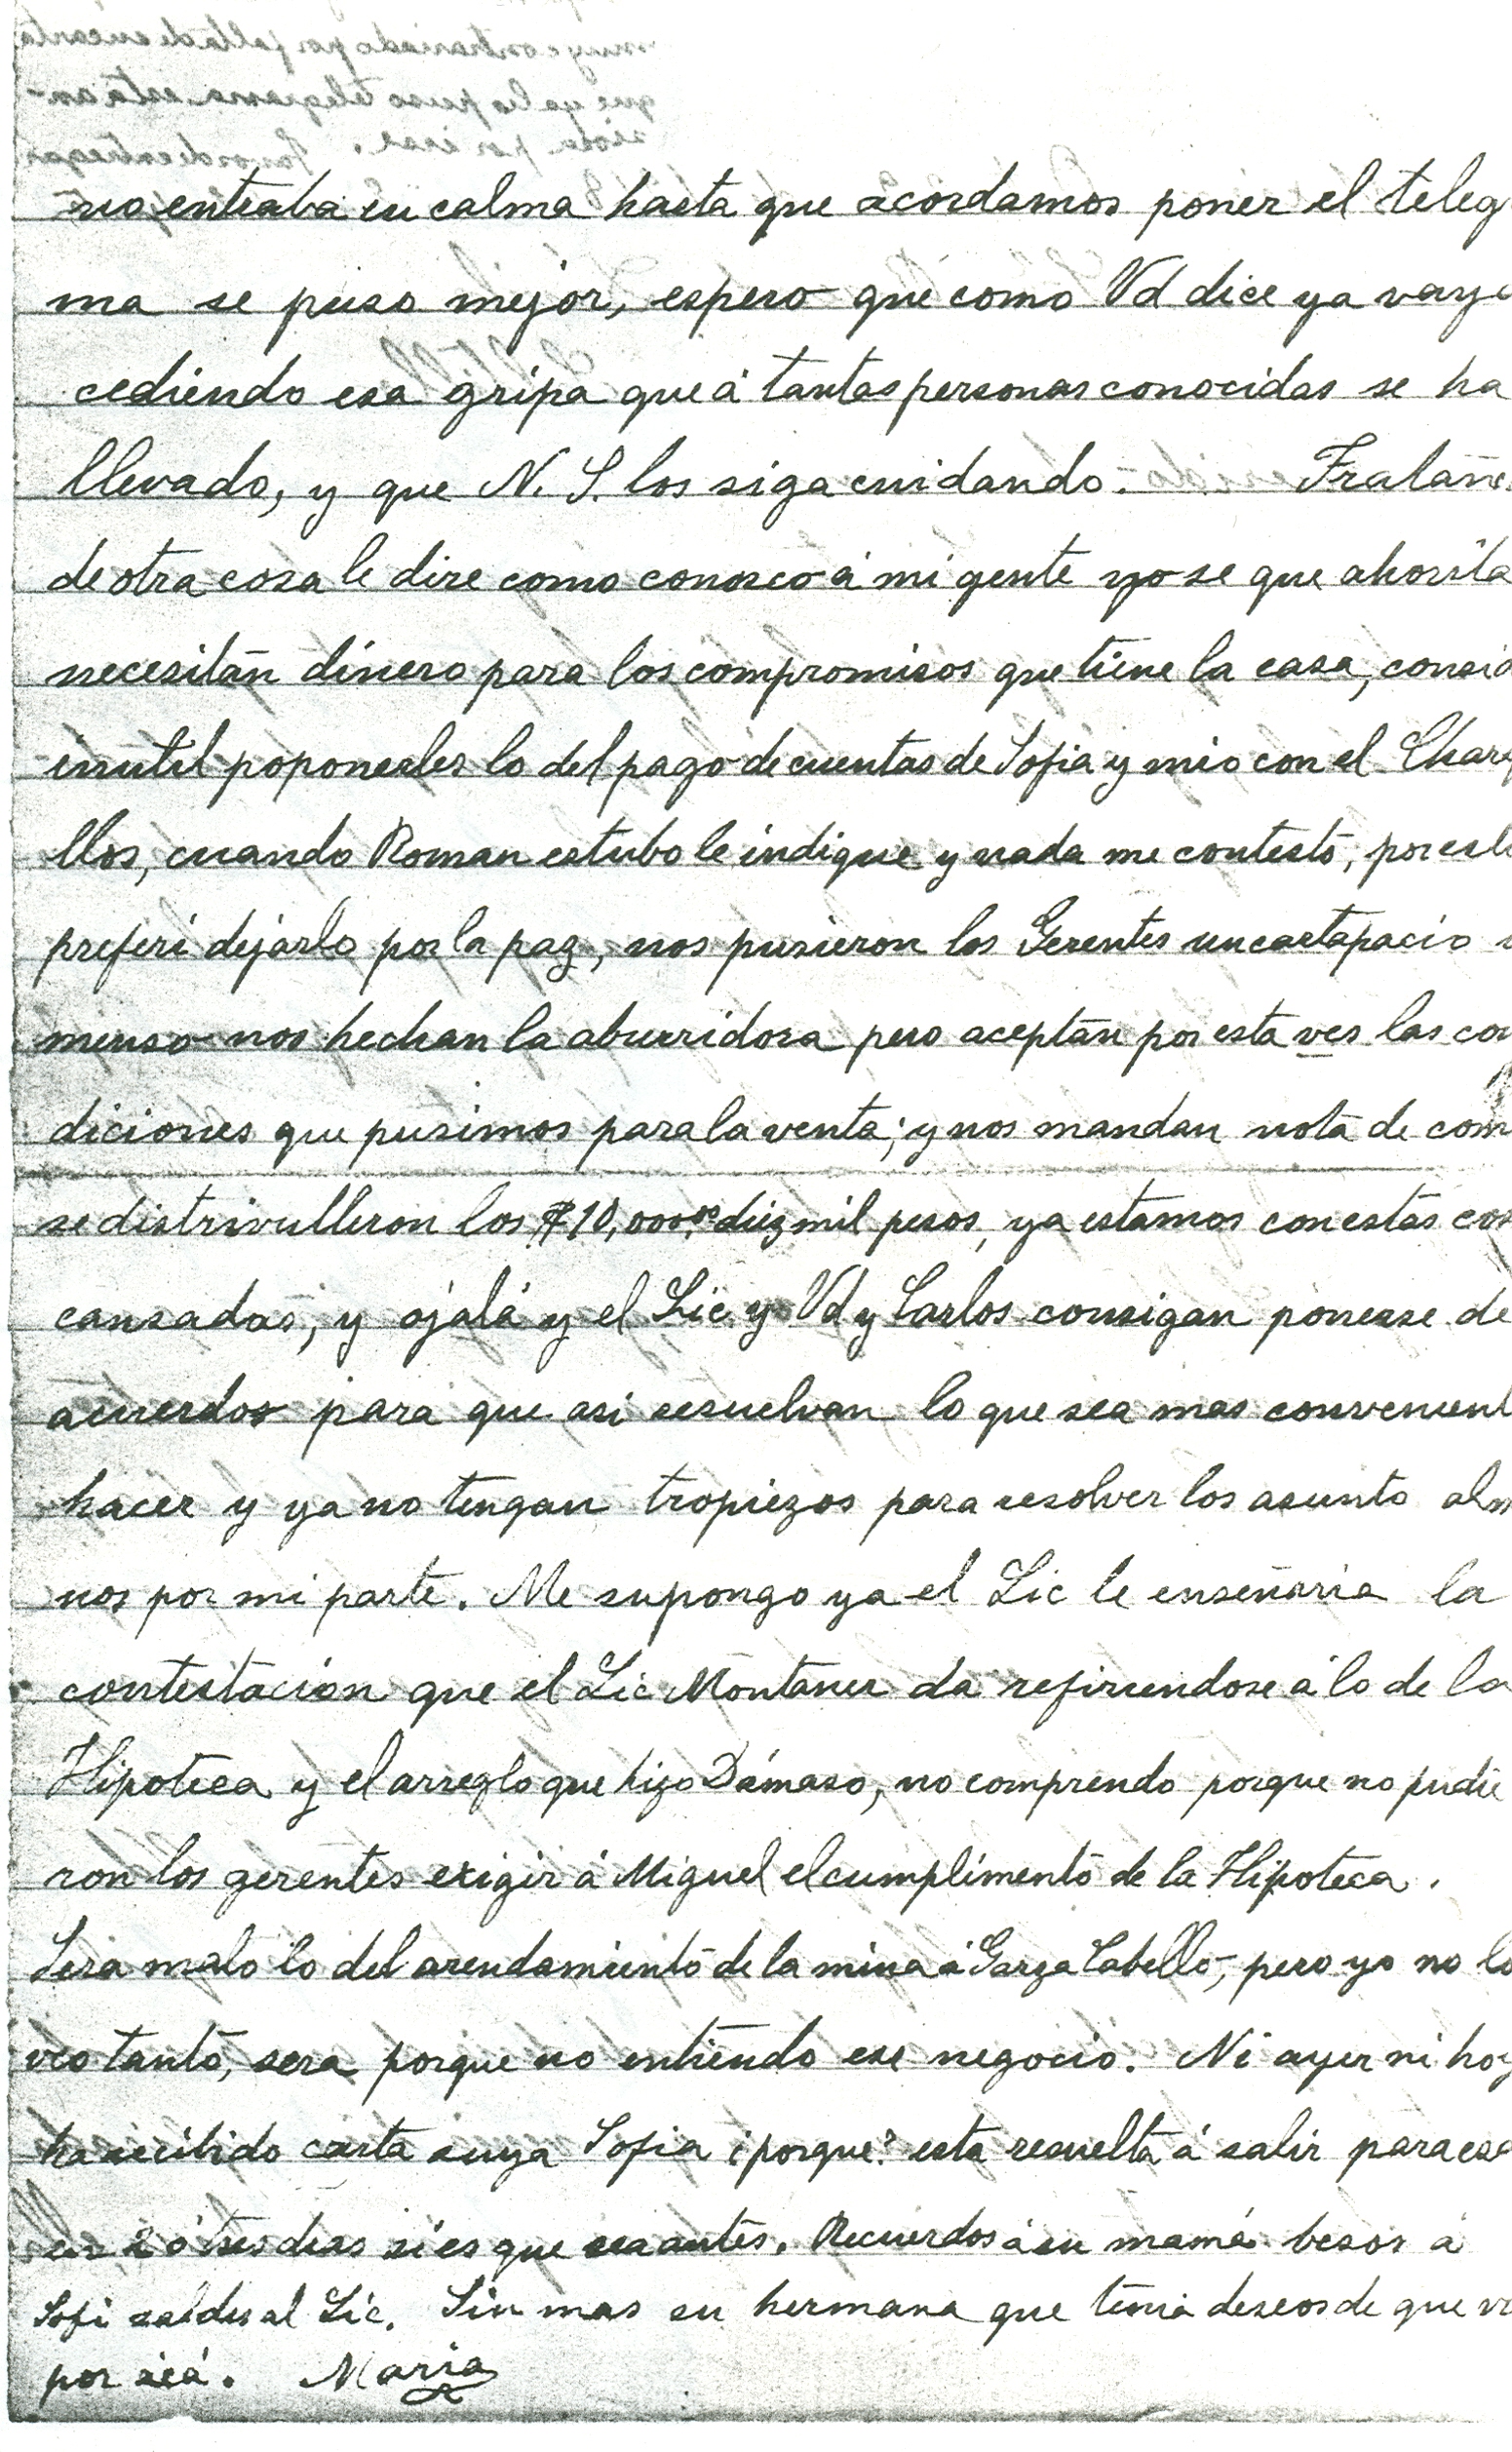 no entraba en calma hasta que acordamos poner el teleg
ma se puso mejor, espero que como Vd dice ya vaya
cediendo esa gripa que á tantas personas conocidas se ha
llevado, y que N. S. los siga cuidando. Fratan
de otra cosa le dire como conosco á mi gente yo se que ahorita
necesitan dinero para los compromisos que tiene la casa, consid
inutil poponerles lo del pago de cuentas de Sofia y mio con el Char
llos, cuando Roman estubo le indique y nada me contestó, por esto
preferi dejarlo por la paz, nos pusieron los Gerentes un cartapacio
menso nos hechan la aburridora pero aceptan por esta ves las con
diciones que pusimos para la venta; y nos mandan nota de com
se distrivulleron los $10,000.00 diez mil pesos, ya estamos con estas cos
cansadas, y ojalá y el Lic y Vd y Carlos consigan ponerse de
acuerdos para que asi resuelvan lo que sea mas convenient
hacer y ya no tengan tropiezos para resolver los asunto alm
nos por mi parte. Me supongo ya el Lic le enseñaria la
contestación que el Lic Montaner da refiriendose á lo de la
Hipoteca y el arreglo que hizo Dámaso, no comprendo porque no pudie
ron los gerentes exigir á Miguel el cumplimento de la Hipoteca.
Sera malo lo del arendamiento de la mina á Garza Cabello, pero yo no lo
veo tanto, sera porque no entiendo ese negocio. Ni ayer ni hoy
ha recibido carta suya Sofia ¿porque? esta resuelta á salir para esa
en 2 ó tres dias si es que sea antes. Recuerdos á su mamá besos á
Sofi saldes al Lic. Sin mas su hermana que tenia deseos de que
por acá. Maria